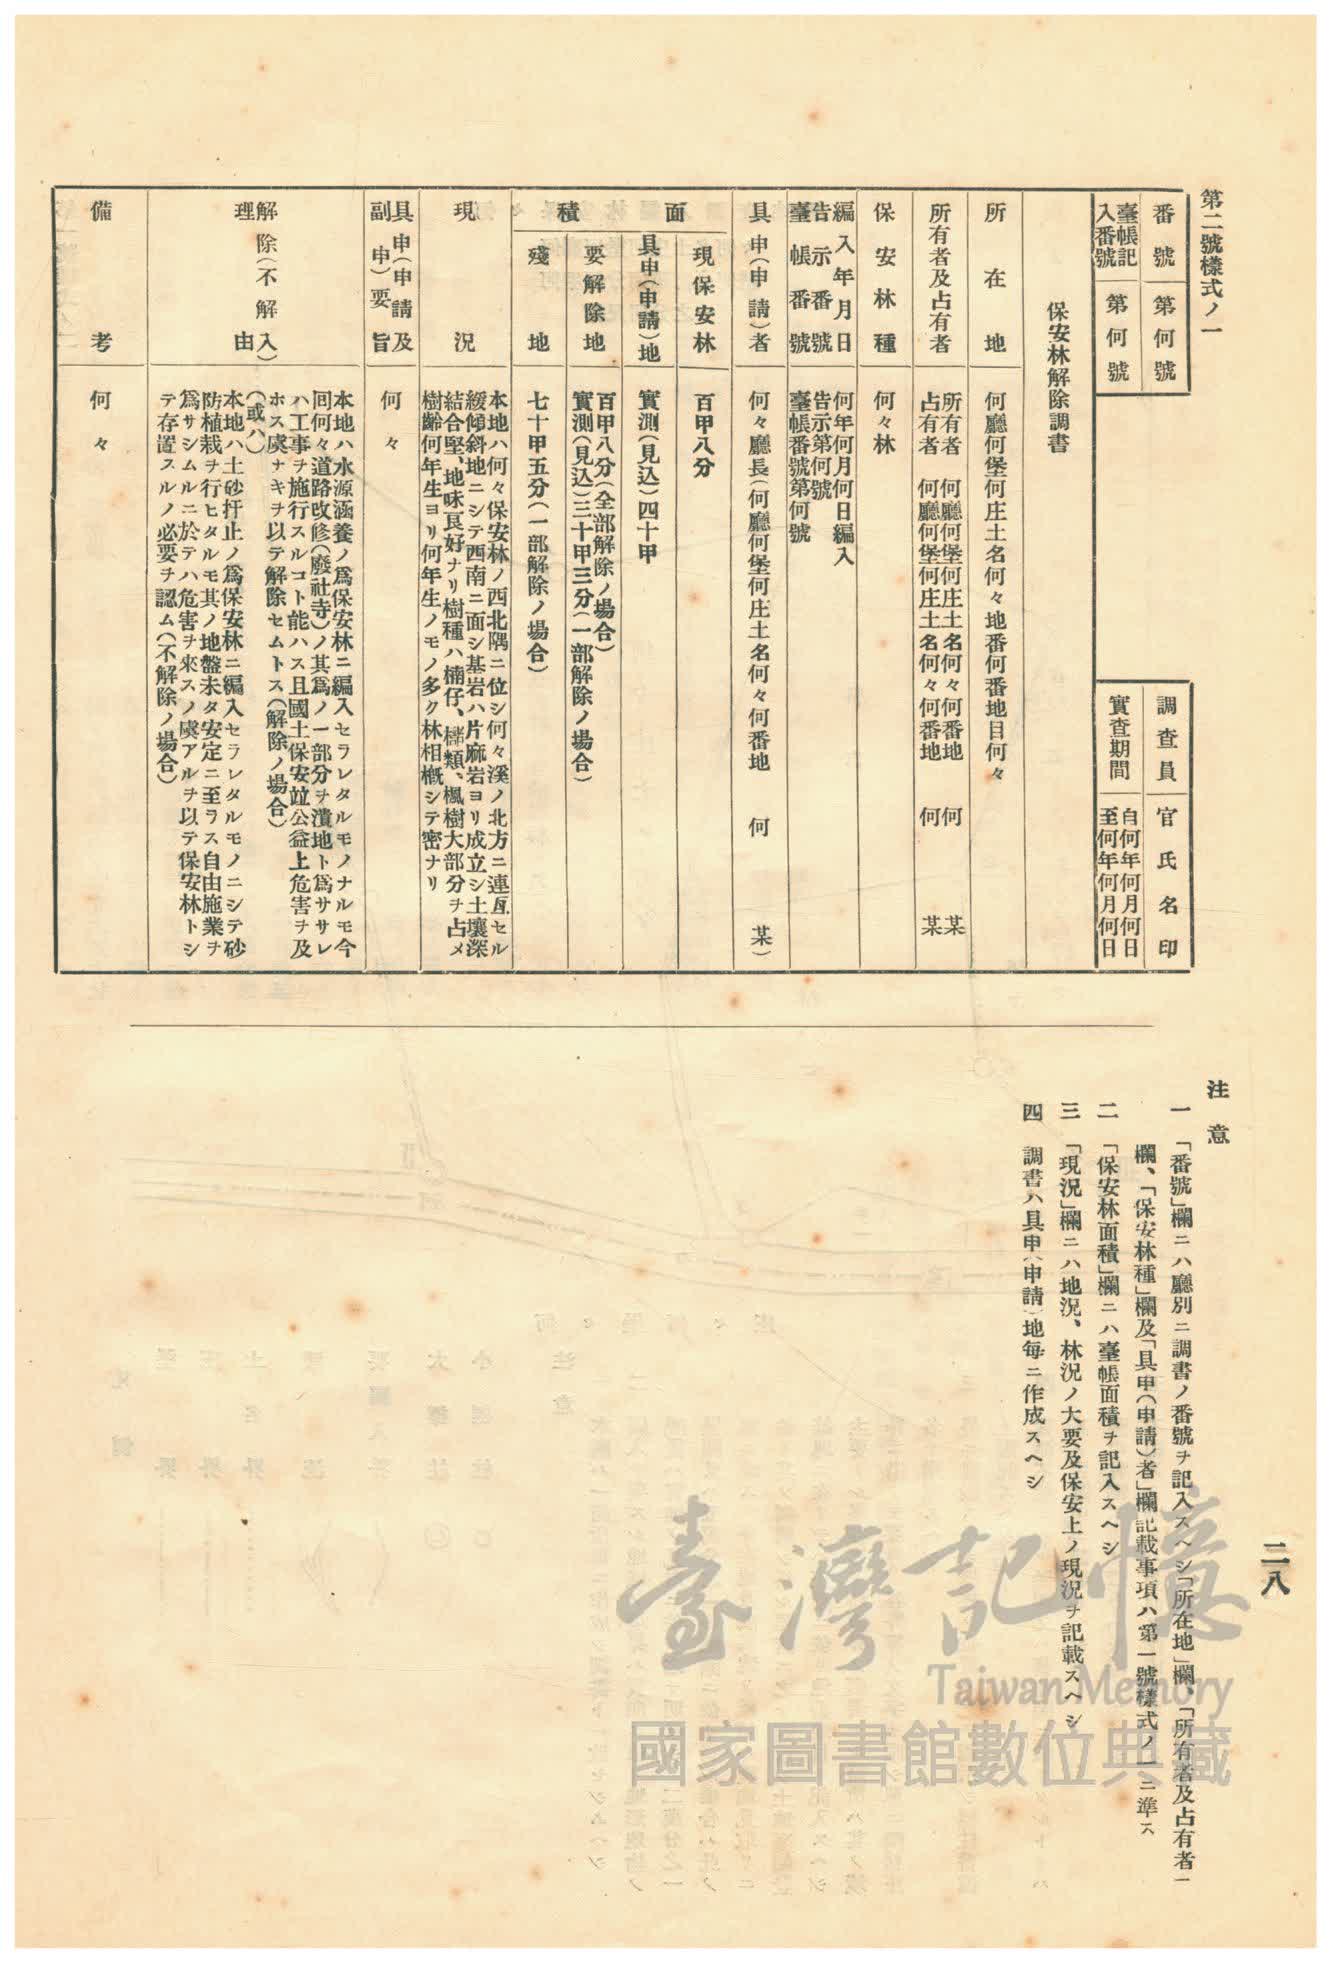 二八
第二號樣式ノ一
番號 第何號
臺帳記入番號 第何號
調査員 官氏名印
實査期間 自何年何月何日
至何年何月何日
保安林解除調書
所在地 何廳何堡何庄土名何々地番何番地目何々
所有者及占有者 所有者 何廳何堡何庄土名何々何番地 何 某
占有者 何廳何堡何庄土名何々何番地 何 某
保安林種 何々林
編入年月日 何年何月何日編入
告示番號 告示第何號
臺帳番號 臺帳番號第何號
具申(申請)者 何々廳長(何廳何堡何庄土名何々何番地 何 某)
面積
現保安林 百甲八分
具申(申請)地 實測(見込)四十甲
要解除地 百甲八分(全部解除ノ場合)
實測(見込)三十甲三分(一部解除ノ場合)
殘地 七十甲五分(一部解除ノ場合)
現況 本地ハ何々保安林ノ西北隅ニ位シ何々溪ノ北方ニ連亙セル
緩傾斜地ニシテ西南ニ面シ基岩ハ片麻岩ヨリ成立シ土壤深
結合堅、地味良好ナリ樹種ハ楠仔、櫧類、楓樹大部分ヲ占メ
樹齡何年生ヨリ何年生ノモノ多ク林相概シテ密ナリ
具申(申請及
副申)要旨 何々
解除(不解入)
理由
本地ハ水源涵養ノ爲保安林ニ編入セラレタルモノナルモ今
回何々道路改修(廢社寺)ノ其爲ノ一部分ヲ潰地ト爲ササレ
ハ工事ヲ施行スルコト能ハス且國土保安竝公益上危害ヲ及
ホス虞ナキヲ以テ解除セムトス(解除ノ場合)
(或ハ)
本地ハ土砂扞止ノ爲保安林ニ編入セラレタルモノニシテ砂
防植栽ヲ行ヒタルモ其ノ地盤未タ安定ニ至ラス自由施業ヲ
爲サシムルニ於テハ危害ヲ來スノ虞アルヲ以テ保安林トシ
テ存置スルノ必要ヲ認ム(不解除ノ場合)
備考 何々
注意
一 「番號」欄ニハ廳別ニ調書ノ番號ヲ記入スヘシ「所在地」欄、「所有者及占有者」
欄、「保安林種」欄及「具申(申請)者」欄記載事項ハ第一號樣式ノ一ニ準ス
二 「保安林面積」欄ニハ臺帳面積ヲ記入スヘシ
三 「現況」欄ニハ地況、林況ノ大要及保安上ノ現況ヲ記載スヘシ
四 調書ハ具申(申請)地每ニ作成スヘシ
臺灣記憶
Taiwan Memory
國家圖書館數位典藏